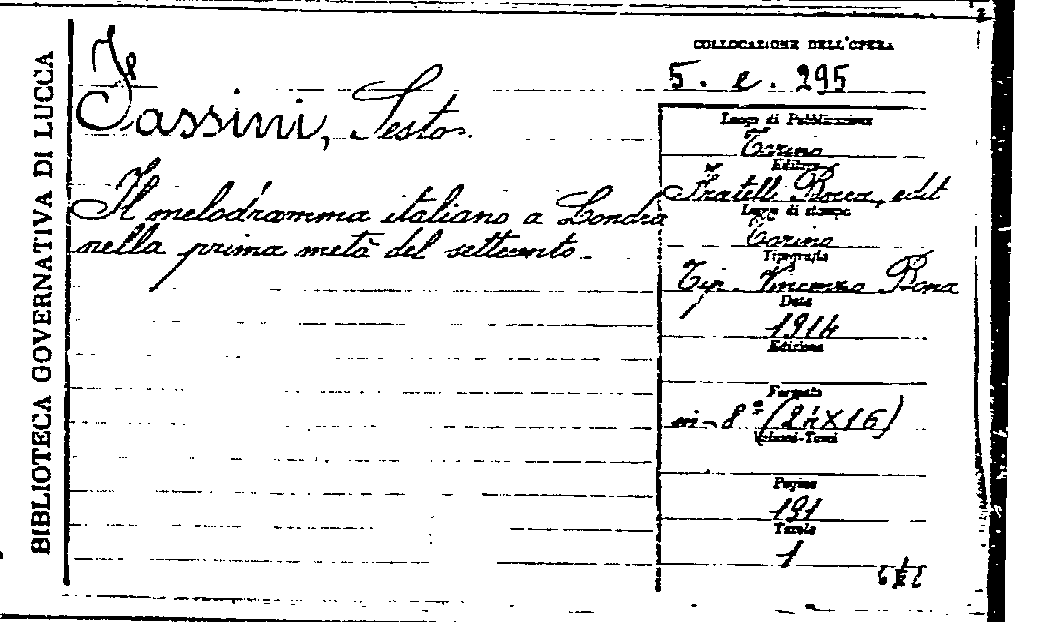 BIBLIOTECA GOVERNATIVA DI LUCCA
Fassini, Sesto.
Il melodramma italiano a Londra
nella prima metà del settecento.
COLLOCAZIONE DELL'OPERA
5. e. 295
Luogo di Pubblicazione
Torino
Editore
Fratelli Bocca, edit
Luogo di stampa
Torino
Tipografia
Tip. Vincenzo Bona
Data
1914
Edizione
Formato
in-8° (24X16)
Volumi-Tomi
Pagine
191
Tavole
1